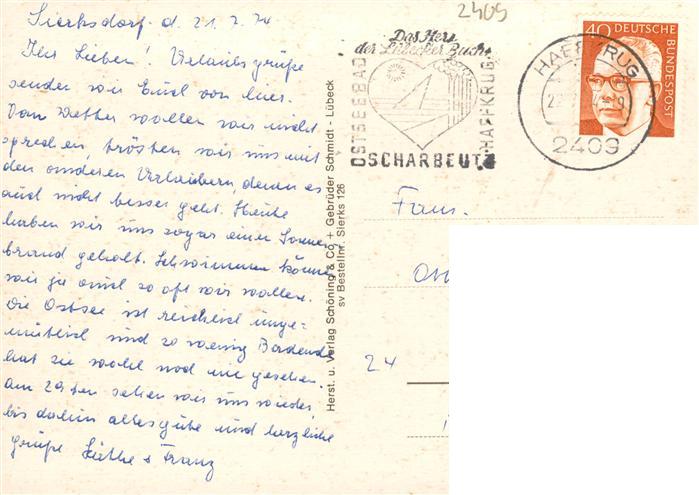 Sierksdorf d. 21.7.74
Ihr Lieben! Urlaubsgrüße
senden wir Euch von hier.
Vom Wetter wollen wir nicht
sprechen, trösten wir uns mit
den anderen Urlaubern, denen es
auch nicht besser geht. Heute
haben wir uns sogar einen Sonnen
brand geholt. Schwimmen können
wir ja auch so oft wir wollen.
Die Ostsee ist reichlich unge-
mütlich und so wenig Badende
hat sie wohl noch nie gesehen.
Am 29ten sehen wir uns wieder,
bis dahin alles gute und herzliche
grüße Käthe + Franz
Herst. u. Verlag Schöning & Co. + Gebrüder Schmidt - Lübeck
sv Bestellnr. Sierks 126
2409
Das Herz
der Lübecker Bucht
OSTSEEBAD
HAFFKRUG
SCHARBEUTZ
HAFFKRUG
2409
40 DEUTSCHE
BUNDESPOST
Fam.
24